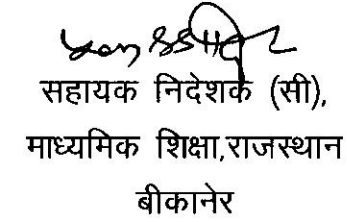 सहायक निदेशक (सी),
माध्यमिक शिक्षा,राजस्थान
बीकानेर